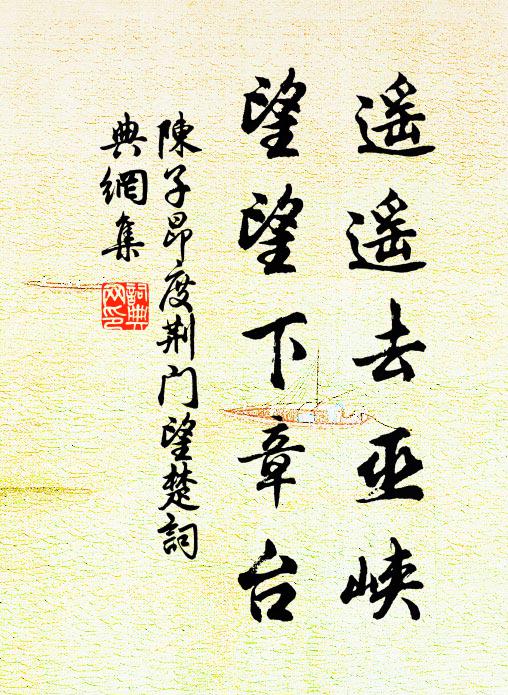 遥遥去巫峡
望望下章台
陳子昂度荆门望楚詞
典網集
詞典網印